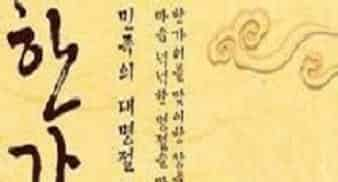 한가
민족의 대명절
한가위를 맞이하
마음 넉넉한 명절을